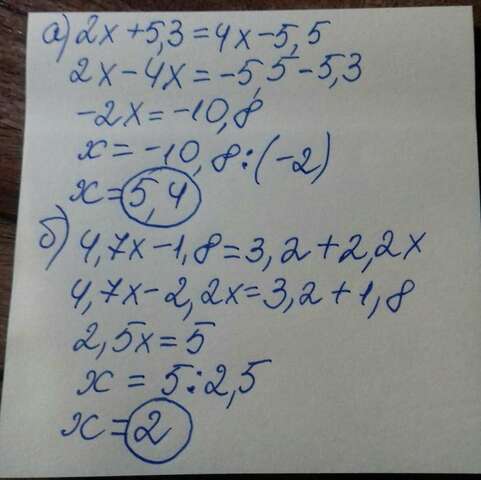 а) 2x+5,3=4x-5,5
2x-4x=-5,5-5,3
-2x=-10,8
x=-10,8:(-2)
x=5,4
б) 4,7x-1,8=3,2+2,2x
4,7x-2,2x=3,2+1,8
2,5x=5
x=5:2,5
x=2